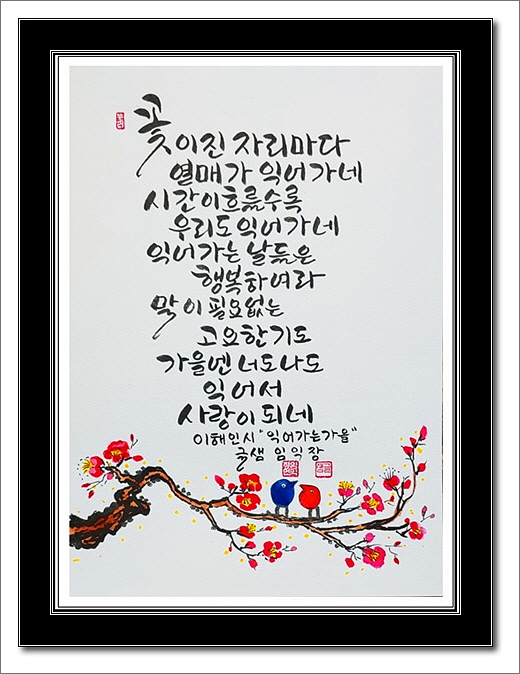 꽃이진 자리마다
열매가 익어가네
시간이흐를수록
우리도익어가네
익어가는날들은
행복하여라
말이필요없는
고요한기도
가을엔너도나도
익어서
사랑이되네
이해인시 "익어가는가을"
글샘 임익장